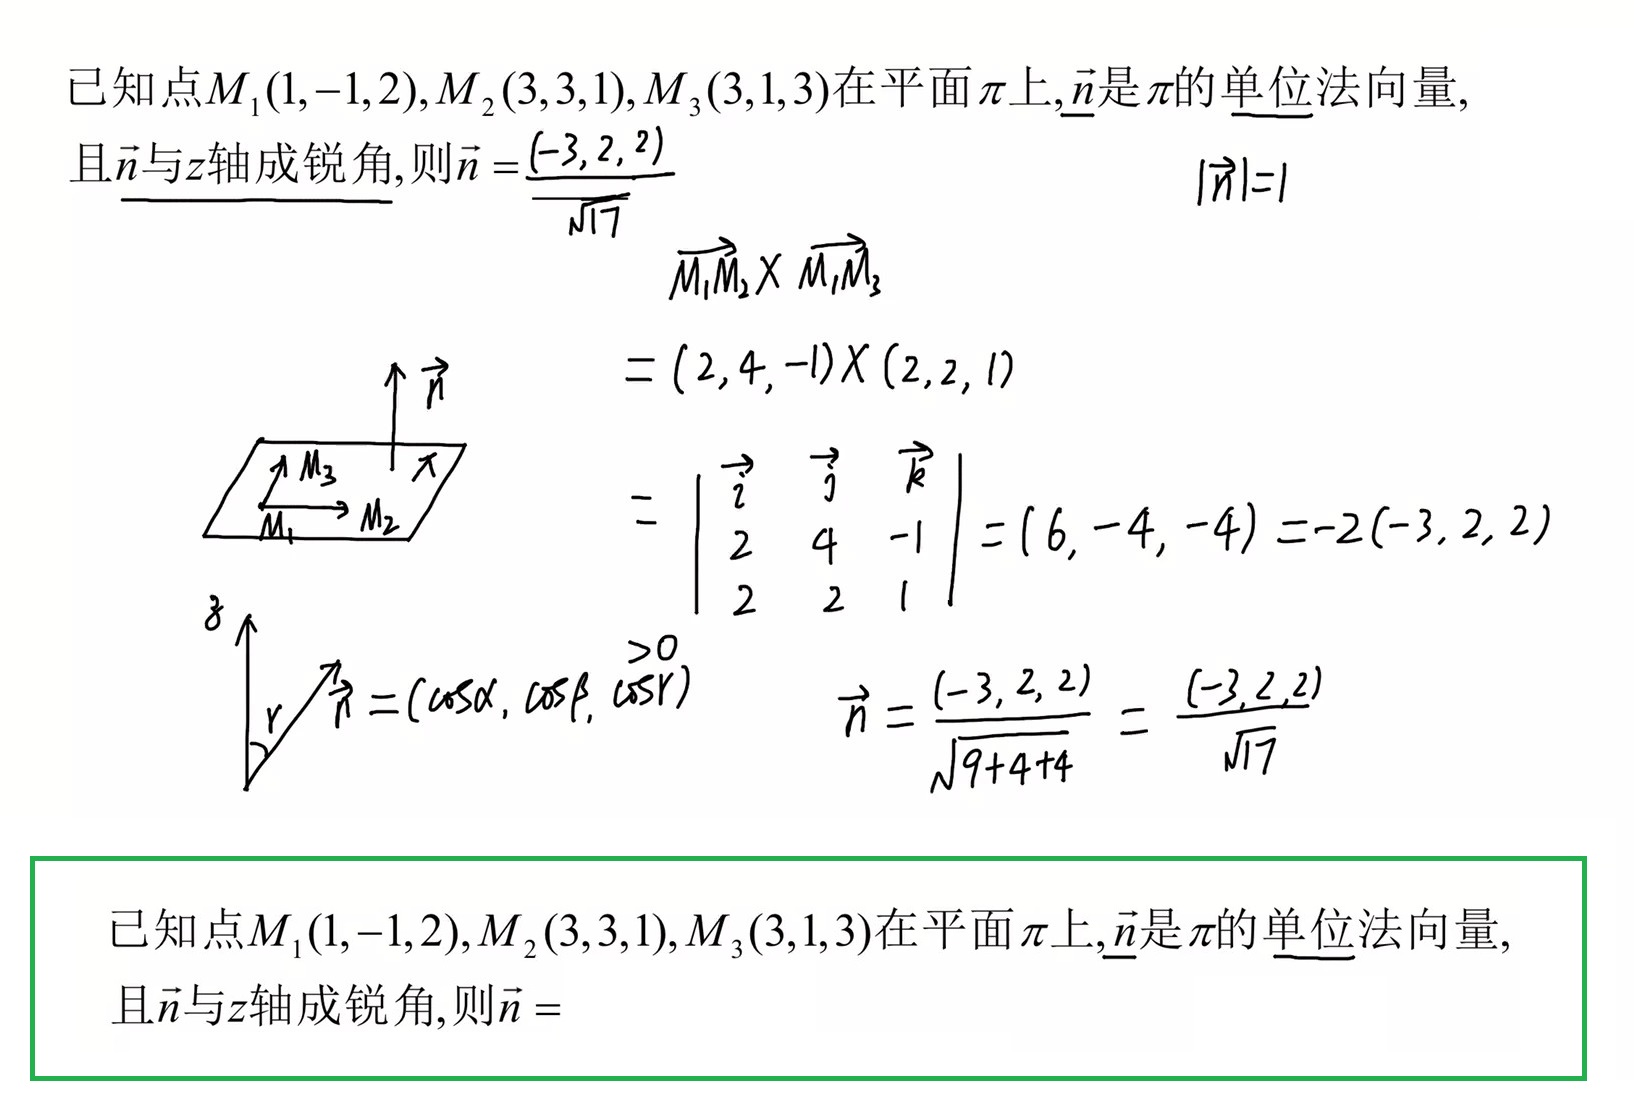 已知点M₁(1,−1,2),M₂(3,3,1),M₃(3,1,3)在平面π上,n⃗是π的单位法向量,
且n⃗与z轴成锐角,则n⃗ = (-3, 2, 2) / √17
|n⃗|=1
M₁M₂ × M₁M₃
= (2, 4, -1) × (2, 2, 1)
n⃗
M₃ π
M₁ M₂
= | i⃗ j⃗ k⃗ |
2 4 -1
2 2 1
= (6, -4, -4) = -2(-3, 2, 2)
z
γ n⃗ = (cosα, cosβ, cosγ)
>0
n⃗ = (-3, 2, 2) / √9+4+4 = (-3, 2, 2) / √17
已知点M₁(1,−1,2),M₂(3,3,1),M₃(3,1,3)在平面π上,n⃗是π的单位法向量,
且n⃗与z轴成锐角,则n⃗ =